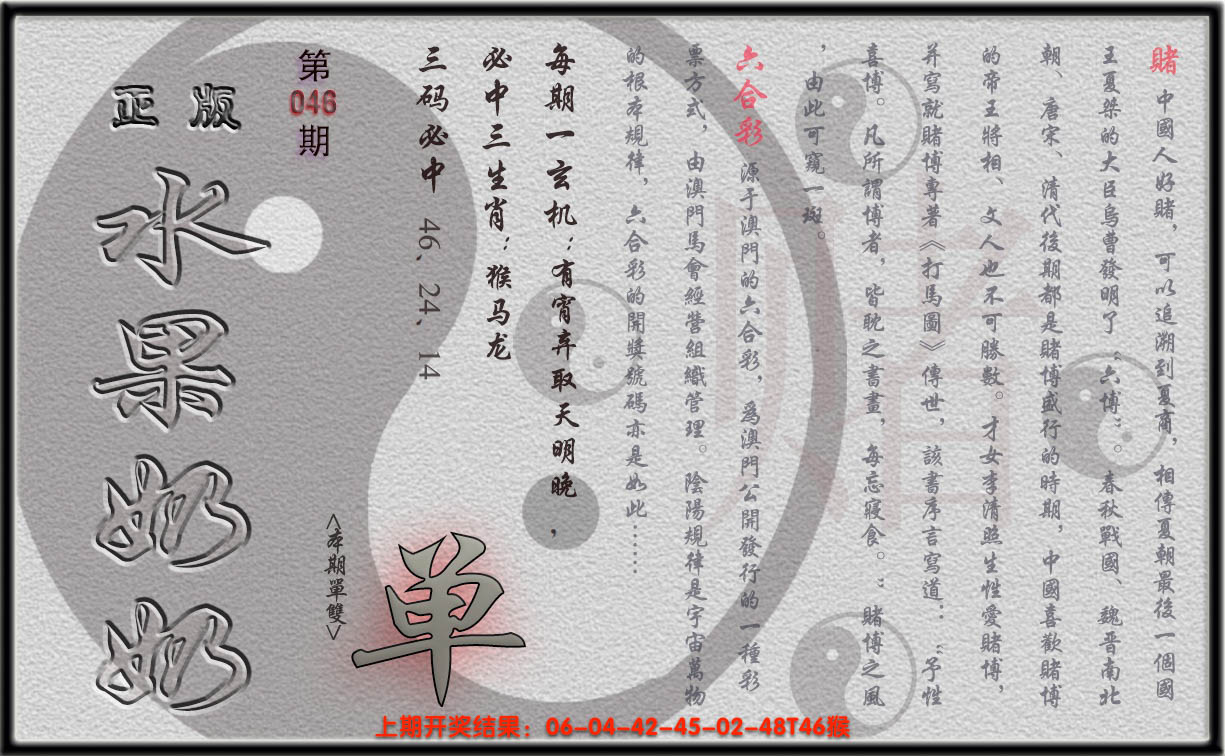 賭 中國人好賭，可以追溯到夏商，相傳夏朝最後一個國
王夏桀的大臣烏曹發明了“六博”。春秋戰國、魏晋南北
朝、唐宋、清代後期都是賭博盛行的時期，中國喜歡賭博
的帝王將相、文人也不可勝數。才女李清照生性愛賭博，
并寫就賭博專著《打馬圖》傳世，該書序言寫道：“予性
喜博。凡所謂博者，皆耽之書畫，每忘寢食。”賭博之風
，由此可窺一斑。
六合彩 源于澳門的六合彩，爲澳門公開發行的一種彩
票方式，由澳門馬會經營組織管理。陰陽規律是宇宙萬物
的根本規律，六合彩的開獎號碼亦是如此……
每期一玄机：有宵弃取天明晚，
必中三生肖：猴马龙
三码必中 46、24、14
单
<本期單雙>
第
046
期
正 版
水果奶奶
賭
上期开奖结果：06-04-42-45-02-48T46猴